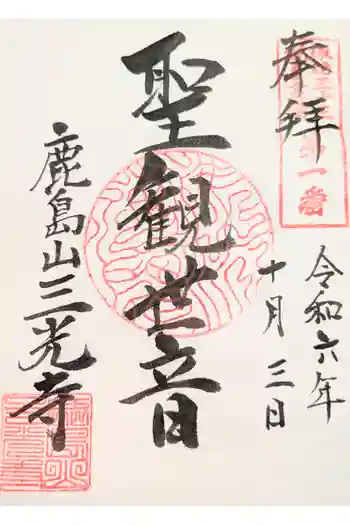 奉拝
令和六年
十月三日
聖観世音
鹿島山三光寺